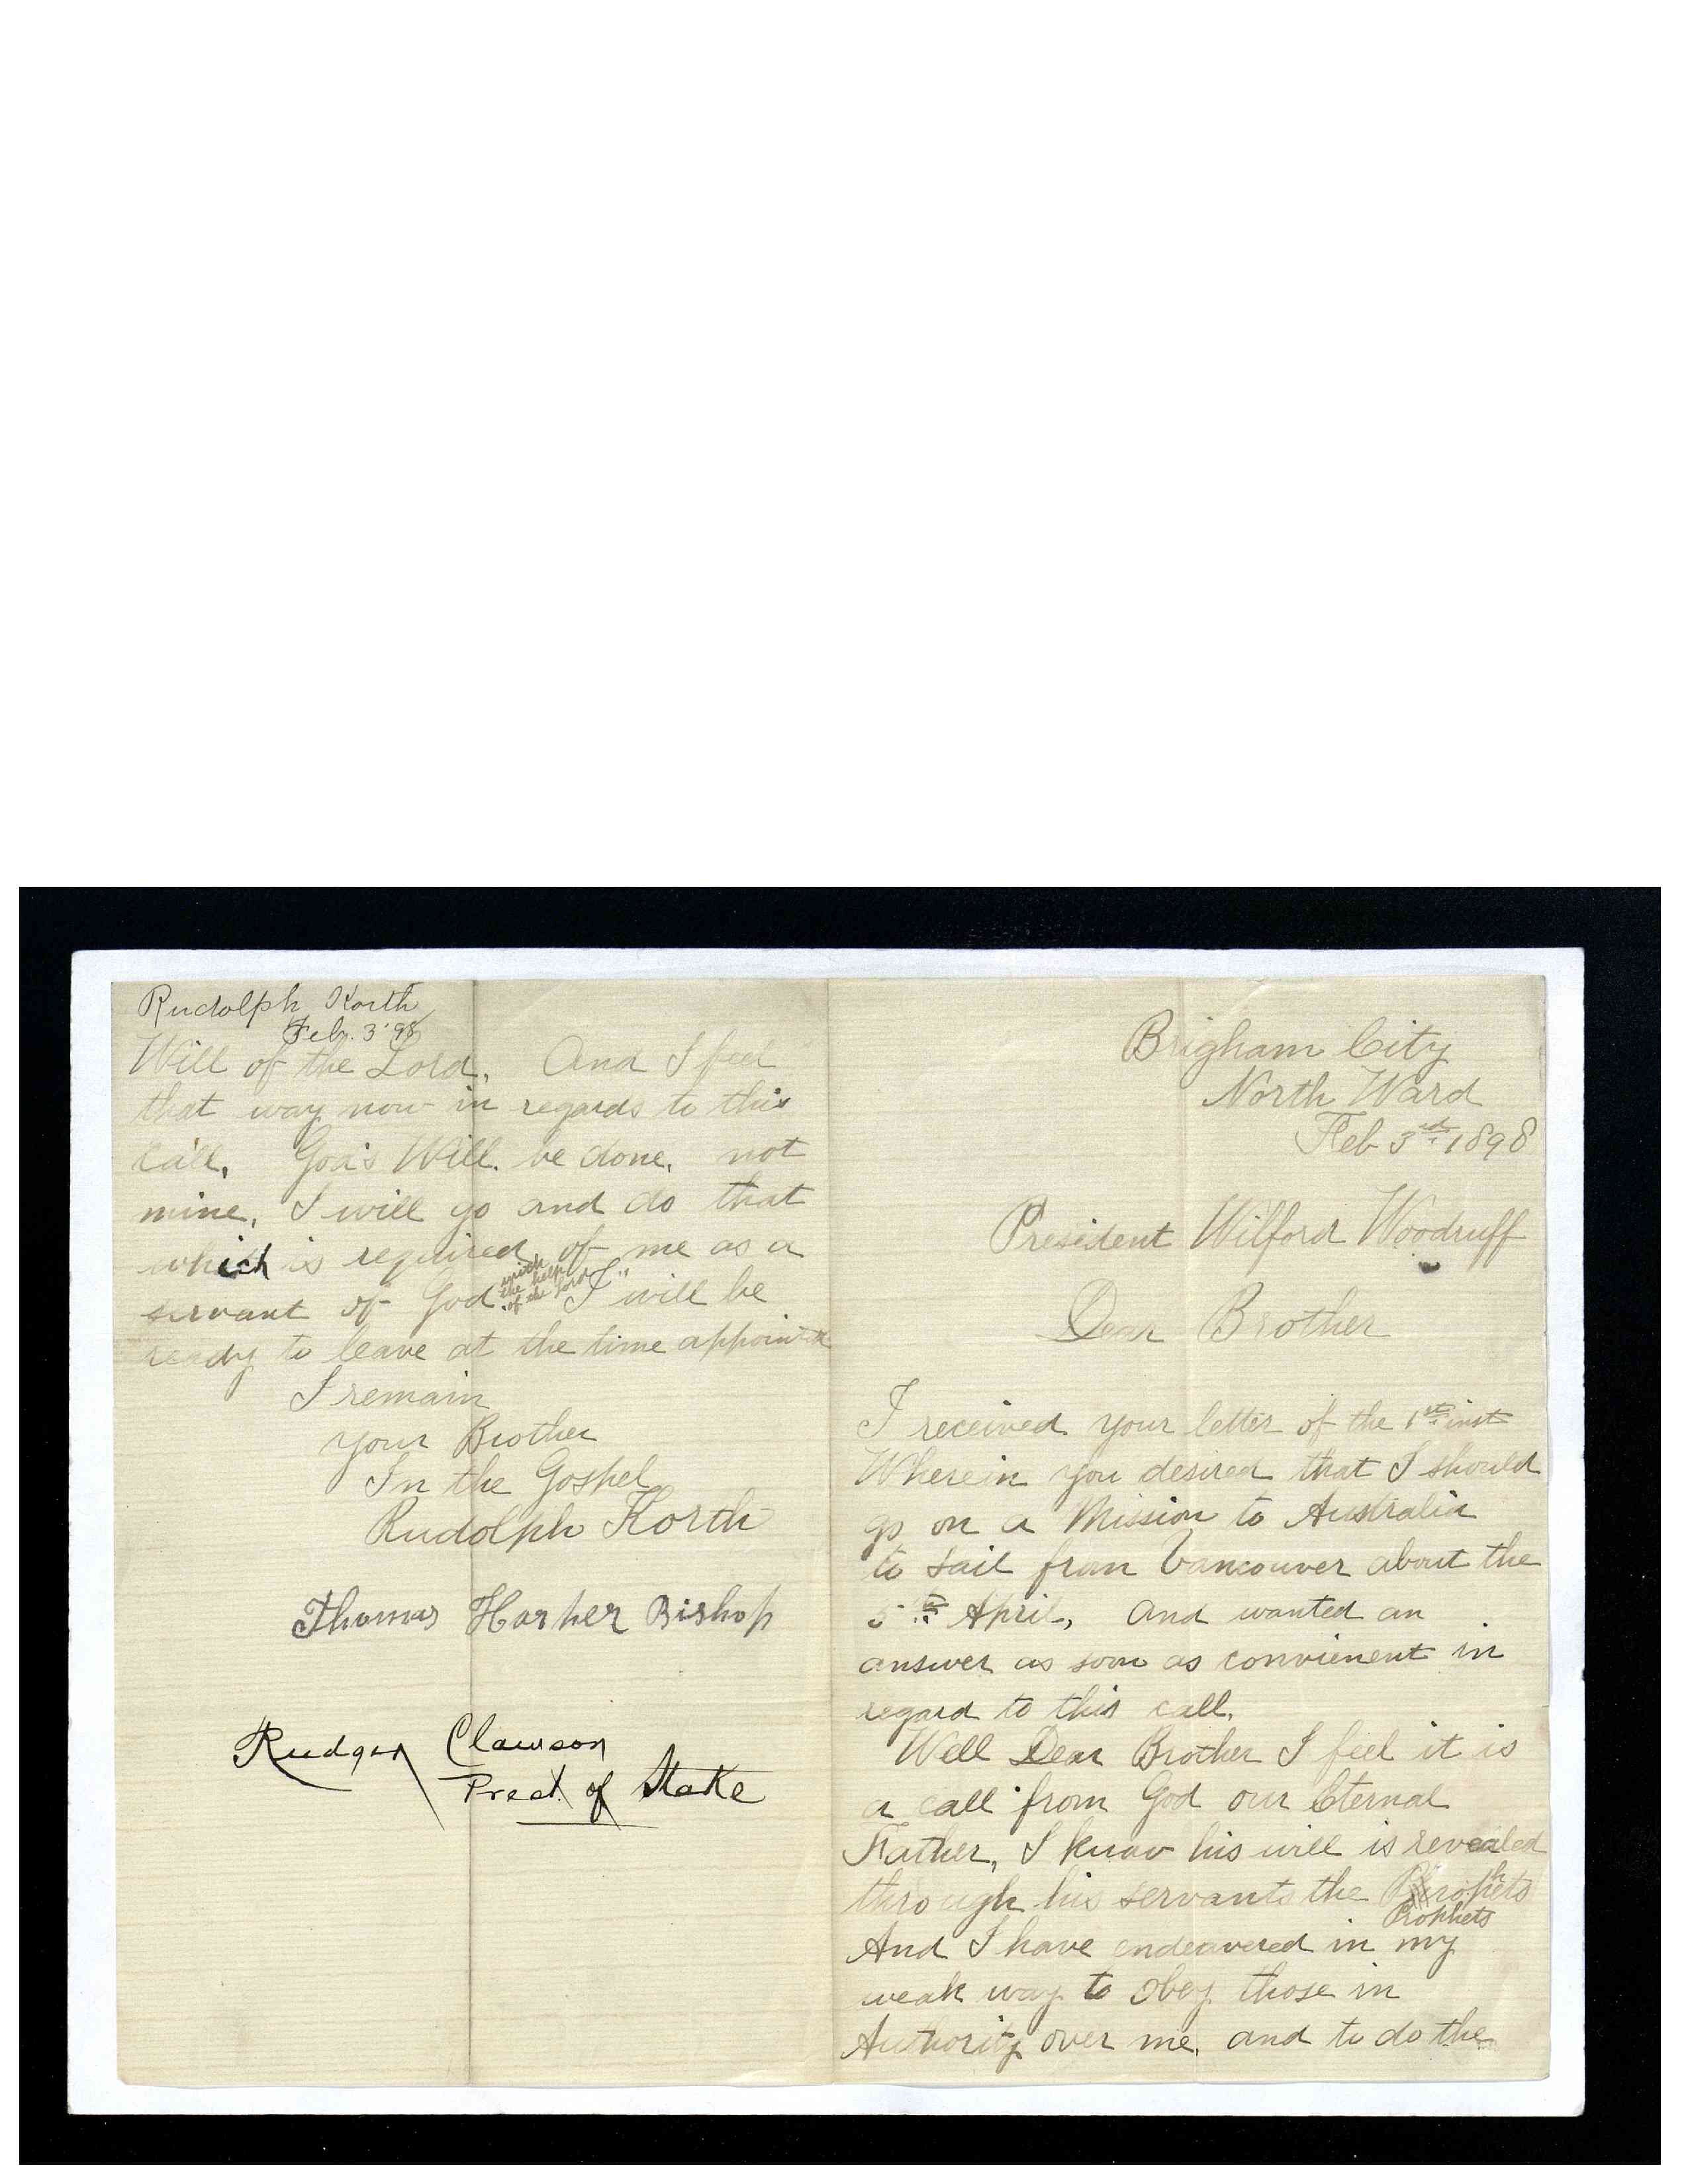 Brigham City
North Ward
Feb 3rd. 1898
President Wilford Woodruff
Dear Brother
I received your letter of the 1st. inst
Wherein you desired that I should
go on a Mission to Australia
to sail from Vancouver about the
5th April, And wanted an
answer as soon as convienent in
regard to this call.
Well Dear Brother I feel it is
a call from God our Eternal
Father, I know his will is revealed
through his servants the Prophets
Prophets
And I have endeavered in my
weak way to obey those in
Authority over me, and to do the
Rudolph Korth
Feb. 3 '98
Will of the Lord, And I feel
that way now in regards to this
call, God's Will. be done, not
mine, I will go and do that
which is required of me as a
servant of God with the help of the Lord I will be
ready to leave at the time appointed
I remain
your Brother
In the Gospel
Rudolph Korth
Thomas Harper Bishop
Rudger Clawson
Prest. of Stake